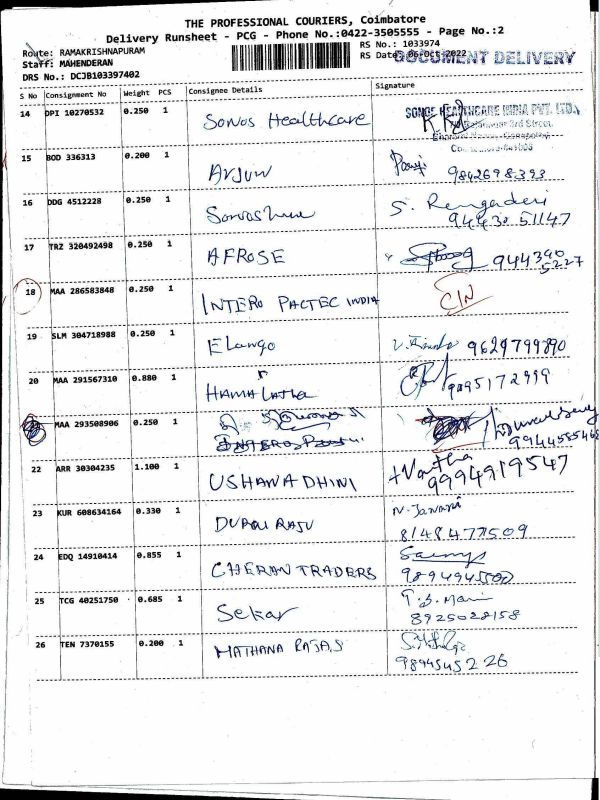 THE PROFESSIONAL COURIERS, Coimbatore
Delivery Runsheet - PCG - Phone No.:0422-3505555 - Page No.:2
Route: RAMAKRISHNAPURAM
RS No.: 1033974
Staff: MAHENDERAN
RS Date: 06-Oct-2022
DOCUMENT DELIVERY
DRS No.: DCJB103397402
S No Consignment No Weight PCS Consignee Details Signature
14 DPI 10270532 0.250 1 Sonos Healthcare
SONOS HEALTHCARE INDIA PVT. LTD.
3rd Street,
15 BOD 336313 0.200 1 Arjun
9842698393
16 DDG 4512228 0.250 1 S. Rengaderi
94430 51147
17 TRZ 320492498 0.250 1 AFROSE
944340
5227
18 MAA 286583848 0.250 1 INTERO PACTEC INDIA CIN
19 SLM 304718988 0.250 1 Elango 9629799890
20 MAA 291567310 0.880 1 HAMA Latha 9095172999
MAA 293508906 0.250 1
9944585468
22 ARR 30304235 1.100 1 USHANADHINI Vantha
9994919547
23 KUR 608634164 0.330 1 DURAI RAJU N. Janani
8148477509
24 EDQ 14910414 0.855 1 CHERAN TRADERS
9894945500
25 TCG 40251750 0.685 1 Sekar T.S. Mani
8925028158
26 TEN 7370155 0.200 1 MATHANA RAJAS
9894545226